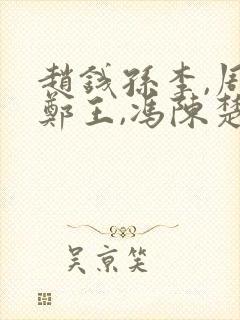 趙錢孫李,周
鄭王,馮陳楚
吴京笑